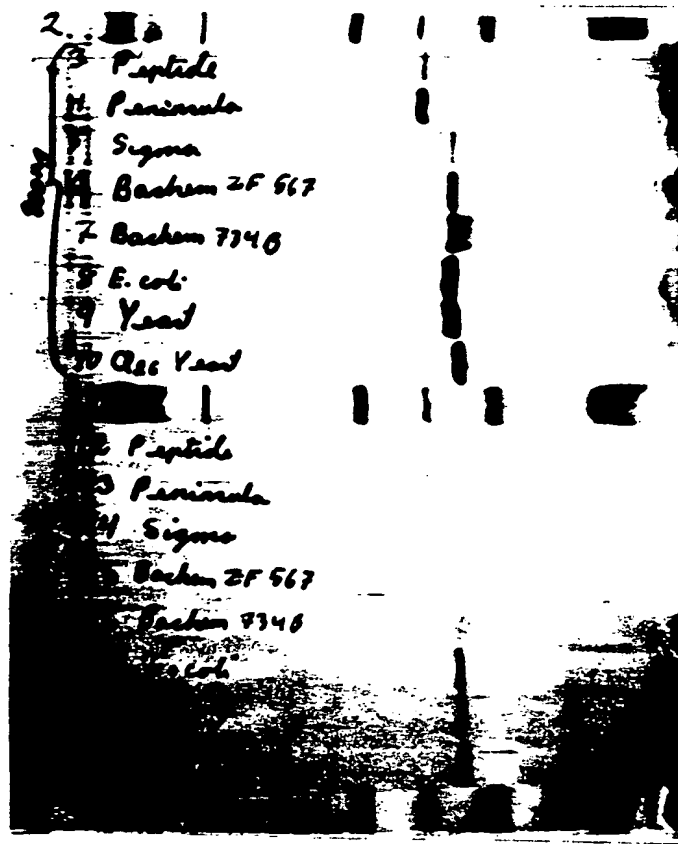 2.
3 Peptide
4. Peninsula
Sigma
6 Bachem ZF 567
7 Bachem 734B
8 E. coli
9 Yeast
10 Yeast
2 Peptide
3 Peninsula
4 Sigma
Bachem ZF 567
Bachem 734B
coli